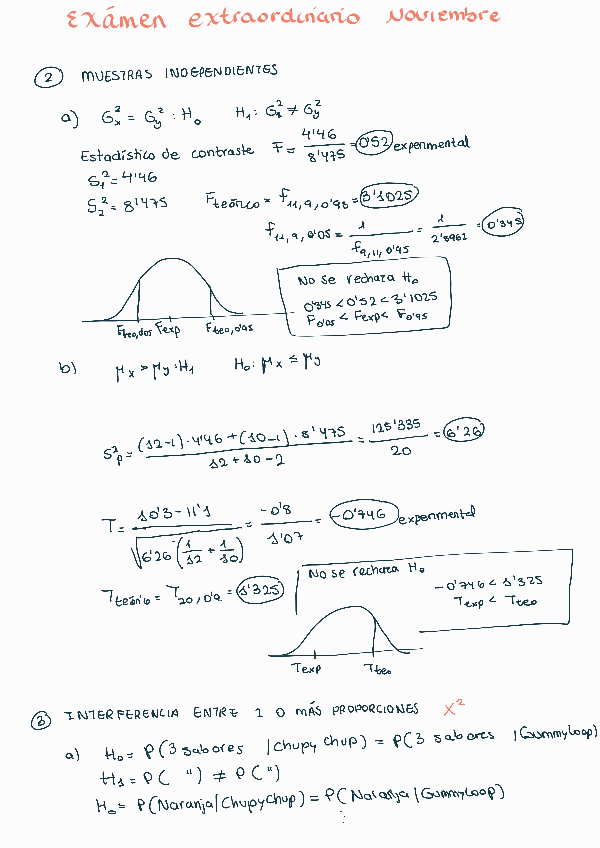 Exámen extraordinario Noviembre
② MUESTRAS INDEPENDIENTES
a) G²x = G²y : H₀ H₁: G²x ≠ G²y
Estadístico de contraste F = 4'46 / 8'475 = 0'52 experimental
S₁² = 4'46
S₂² = 8'475 Fteórico = f₁₁,₉,₀'₉₅ = 3'1025
f₁₁,₉,₀'₀₅ = 1 / f₉,₁₁,₀'₉₅ = 1 / 2'8962 = 0'345
No se rechaza H₀
0'345 < 0'52 < 3'1025
F₀'₀₅ < Fexp < F₀'₉₅
Fteo,0'05 Fexp Fteo,0'95
b) μx > μy : H₁ H₀: μx ≤ μy
S²p = (12-1)·4'46 + (10-1)·8'475 / 12+10-2 = 125'335 / 20 = 6'26
T = 10'3 - 11'1 / √6'26 (1/12 + 1/10) = -0'8 / 1'07 = -0'746 experimental
Tteórico = T₂₀,₀'₉ = 1'325
No se rechaza H₀
-0'746 < 1'325
Texp < Tteo
Texp Tteo
③ INTERFERENCIA ENTRE 2 O MÁS PROPORCIONES X²
a) H₀ = P(3 sabores | Chupy Chup) = P(3 sabores | Gummyloop)
H₁ = P( ") ≠ P(")
H₀ = P(Naranja | ChupyChup) = P(Naranja | Gummyloop)
⋮